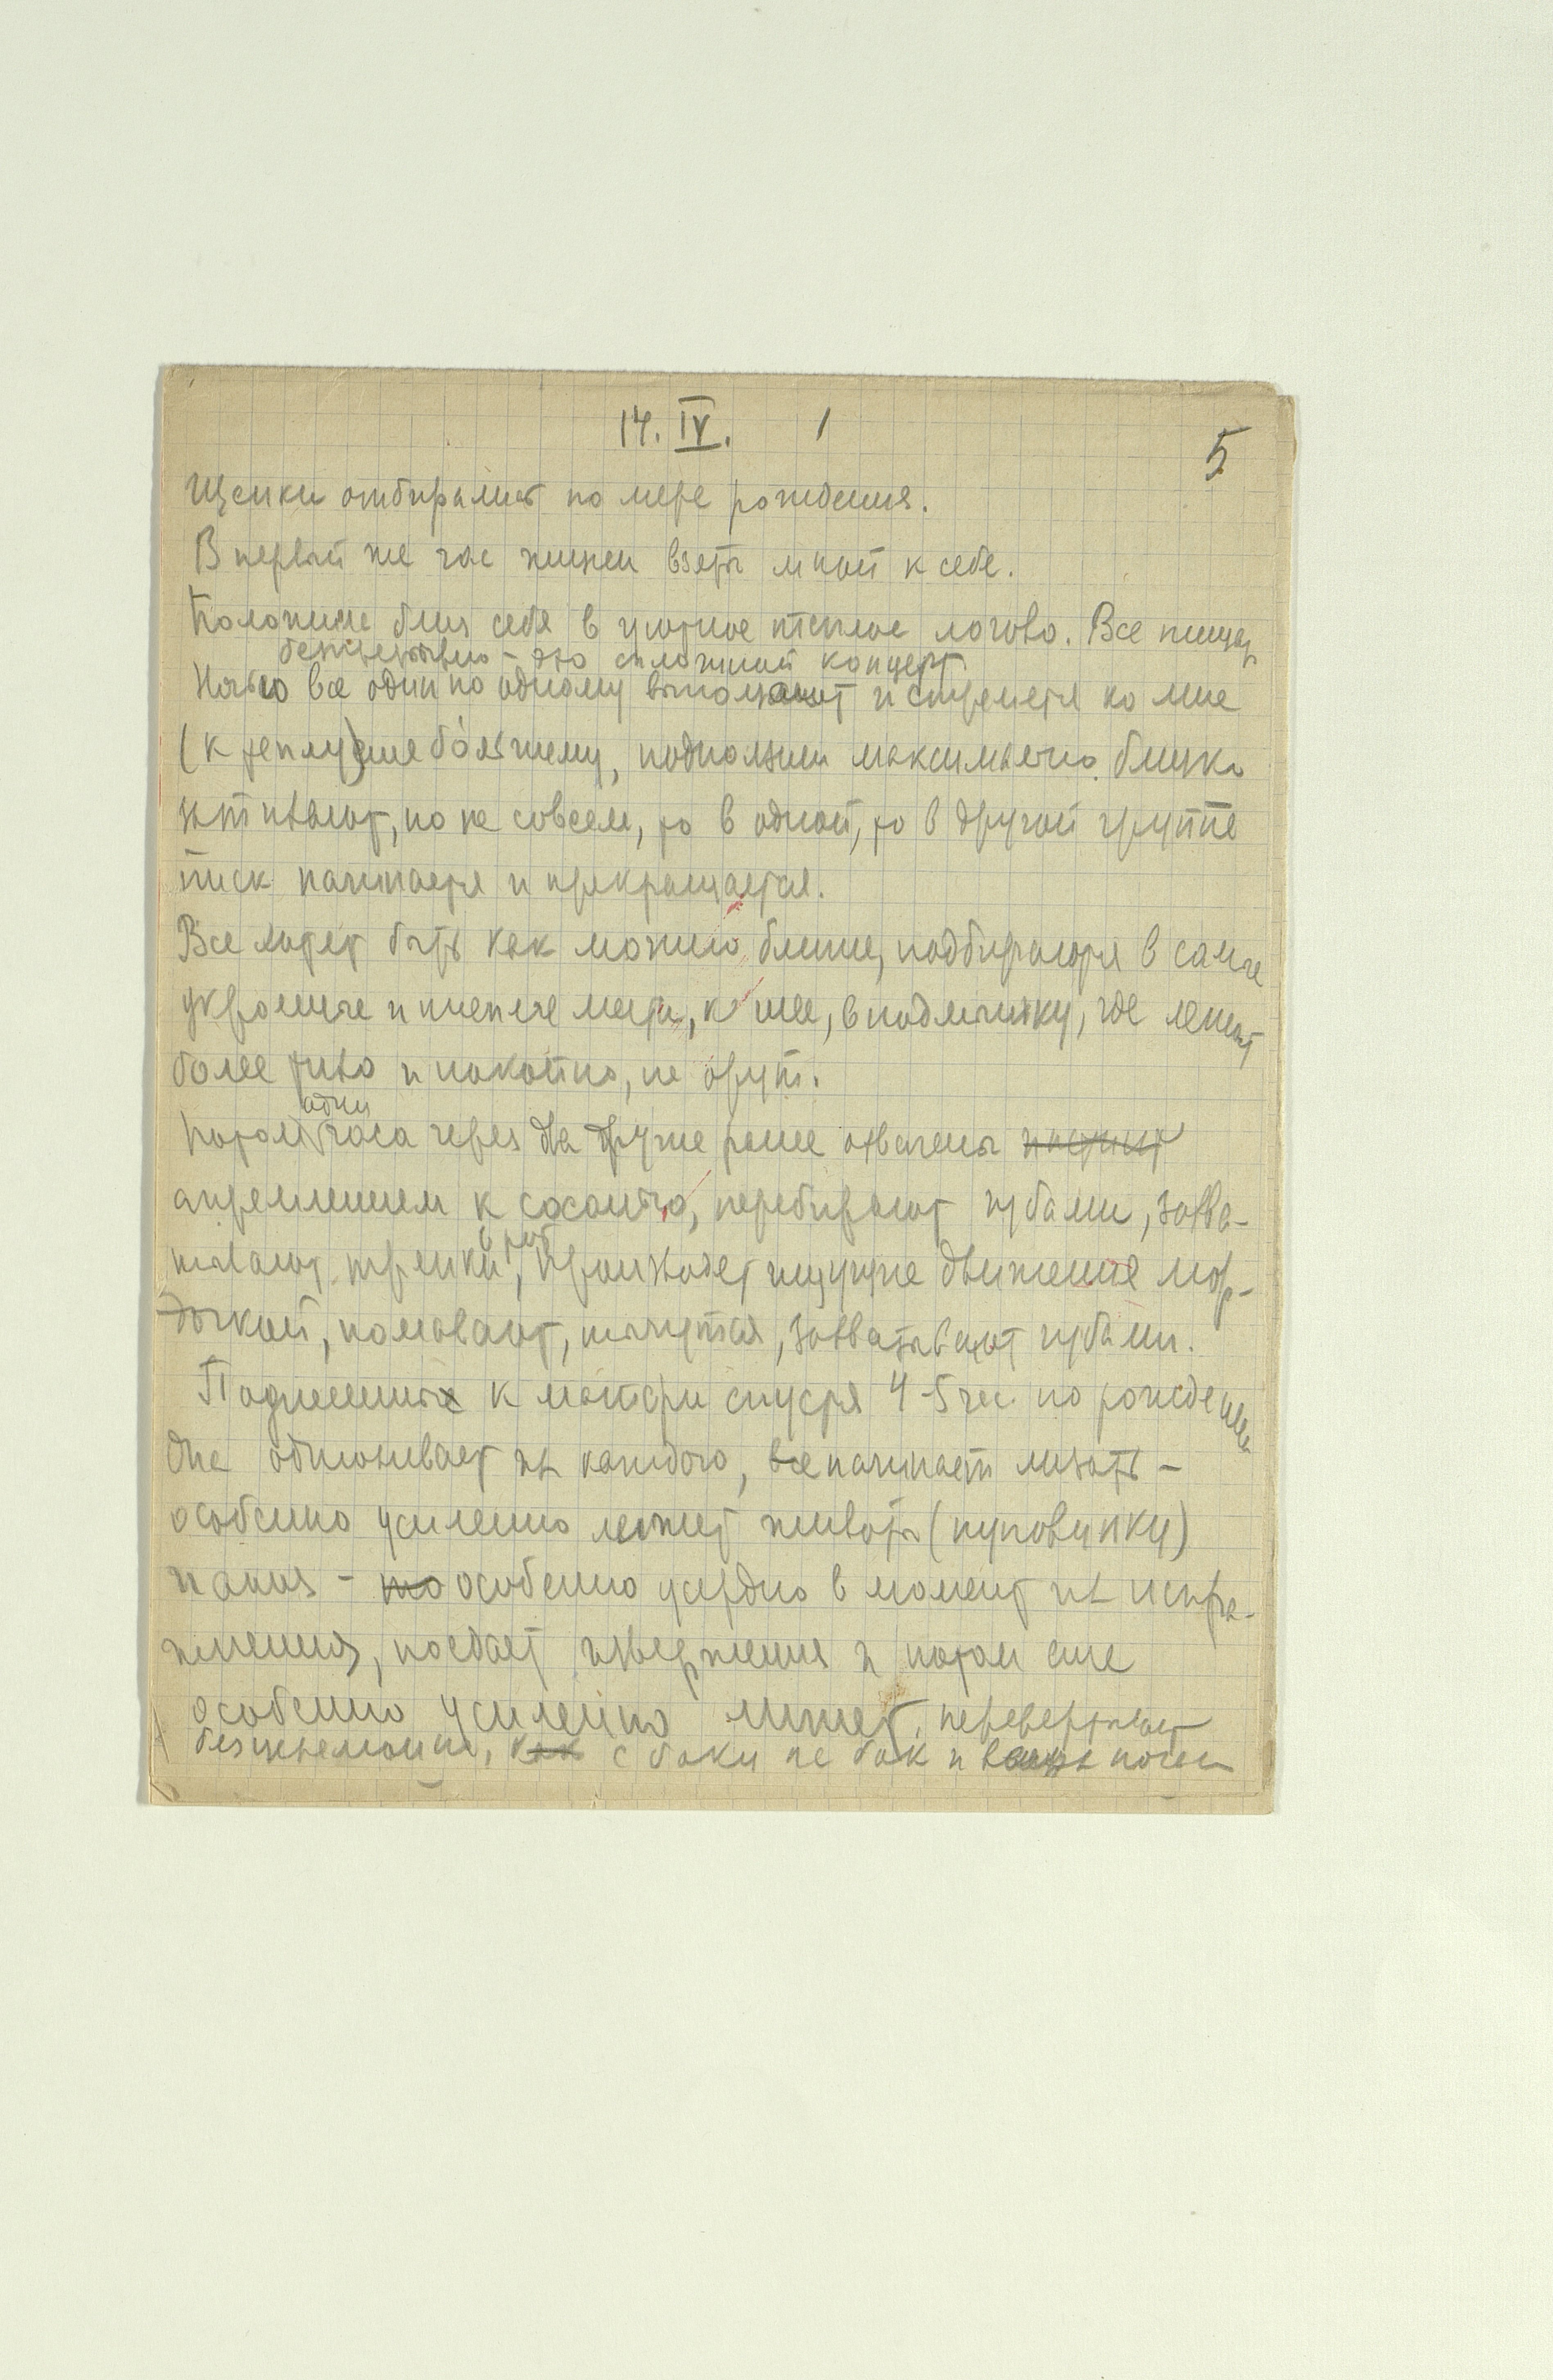 14. IV. 1
5
Щенки отбирались по мере рождения.
В первый же час жизни взяты мной к себе.
Положила близ себя в уютное теплое логово. Все пищат
безпрерывно – это сплошной концерт
Ночью все один по одному выползают и стремятся ко мне
(к теплу) еще большему, подползши максимально близко
затихают, но не совсем, то в одной, то в другой группе
писк начинается и прекращается.
Все хотят быть как можно ближе, подбираются в самые
укромные и теплые места, к шее, в подмышку, где лежат
более тихо и покойно, не орут.
одни
Потом часа через два другие ранее охвачены
стремлением к сосанию, перебирают губами, захва-
тывают тряпки в рот, производят ищущие движения мор-
дочкой, ползают, тычутся, захватывают губами.
Поднесены к матери спустя 4-5 час. по рождении
Она обнюхивает их каждого, все начинает лизать –
особенно усиленно лижет животы (пуповинку)
и анус – то особенно усердно в момент их испра-
жнения, поедает извержения и потом еще
особенно усиленно лижет, перевертывает
безцеремонно, как с боку на бок и вверх ногами